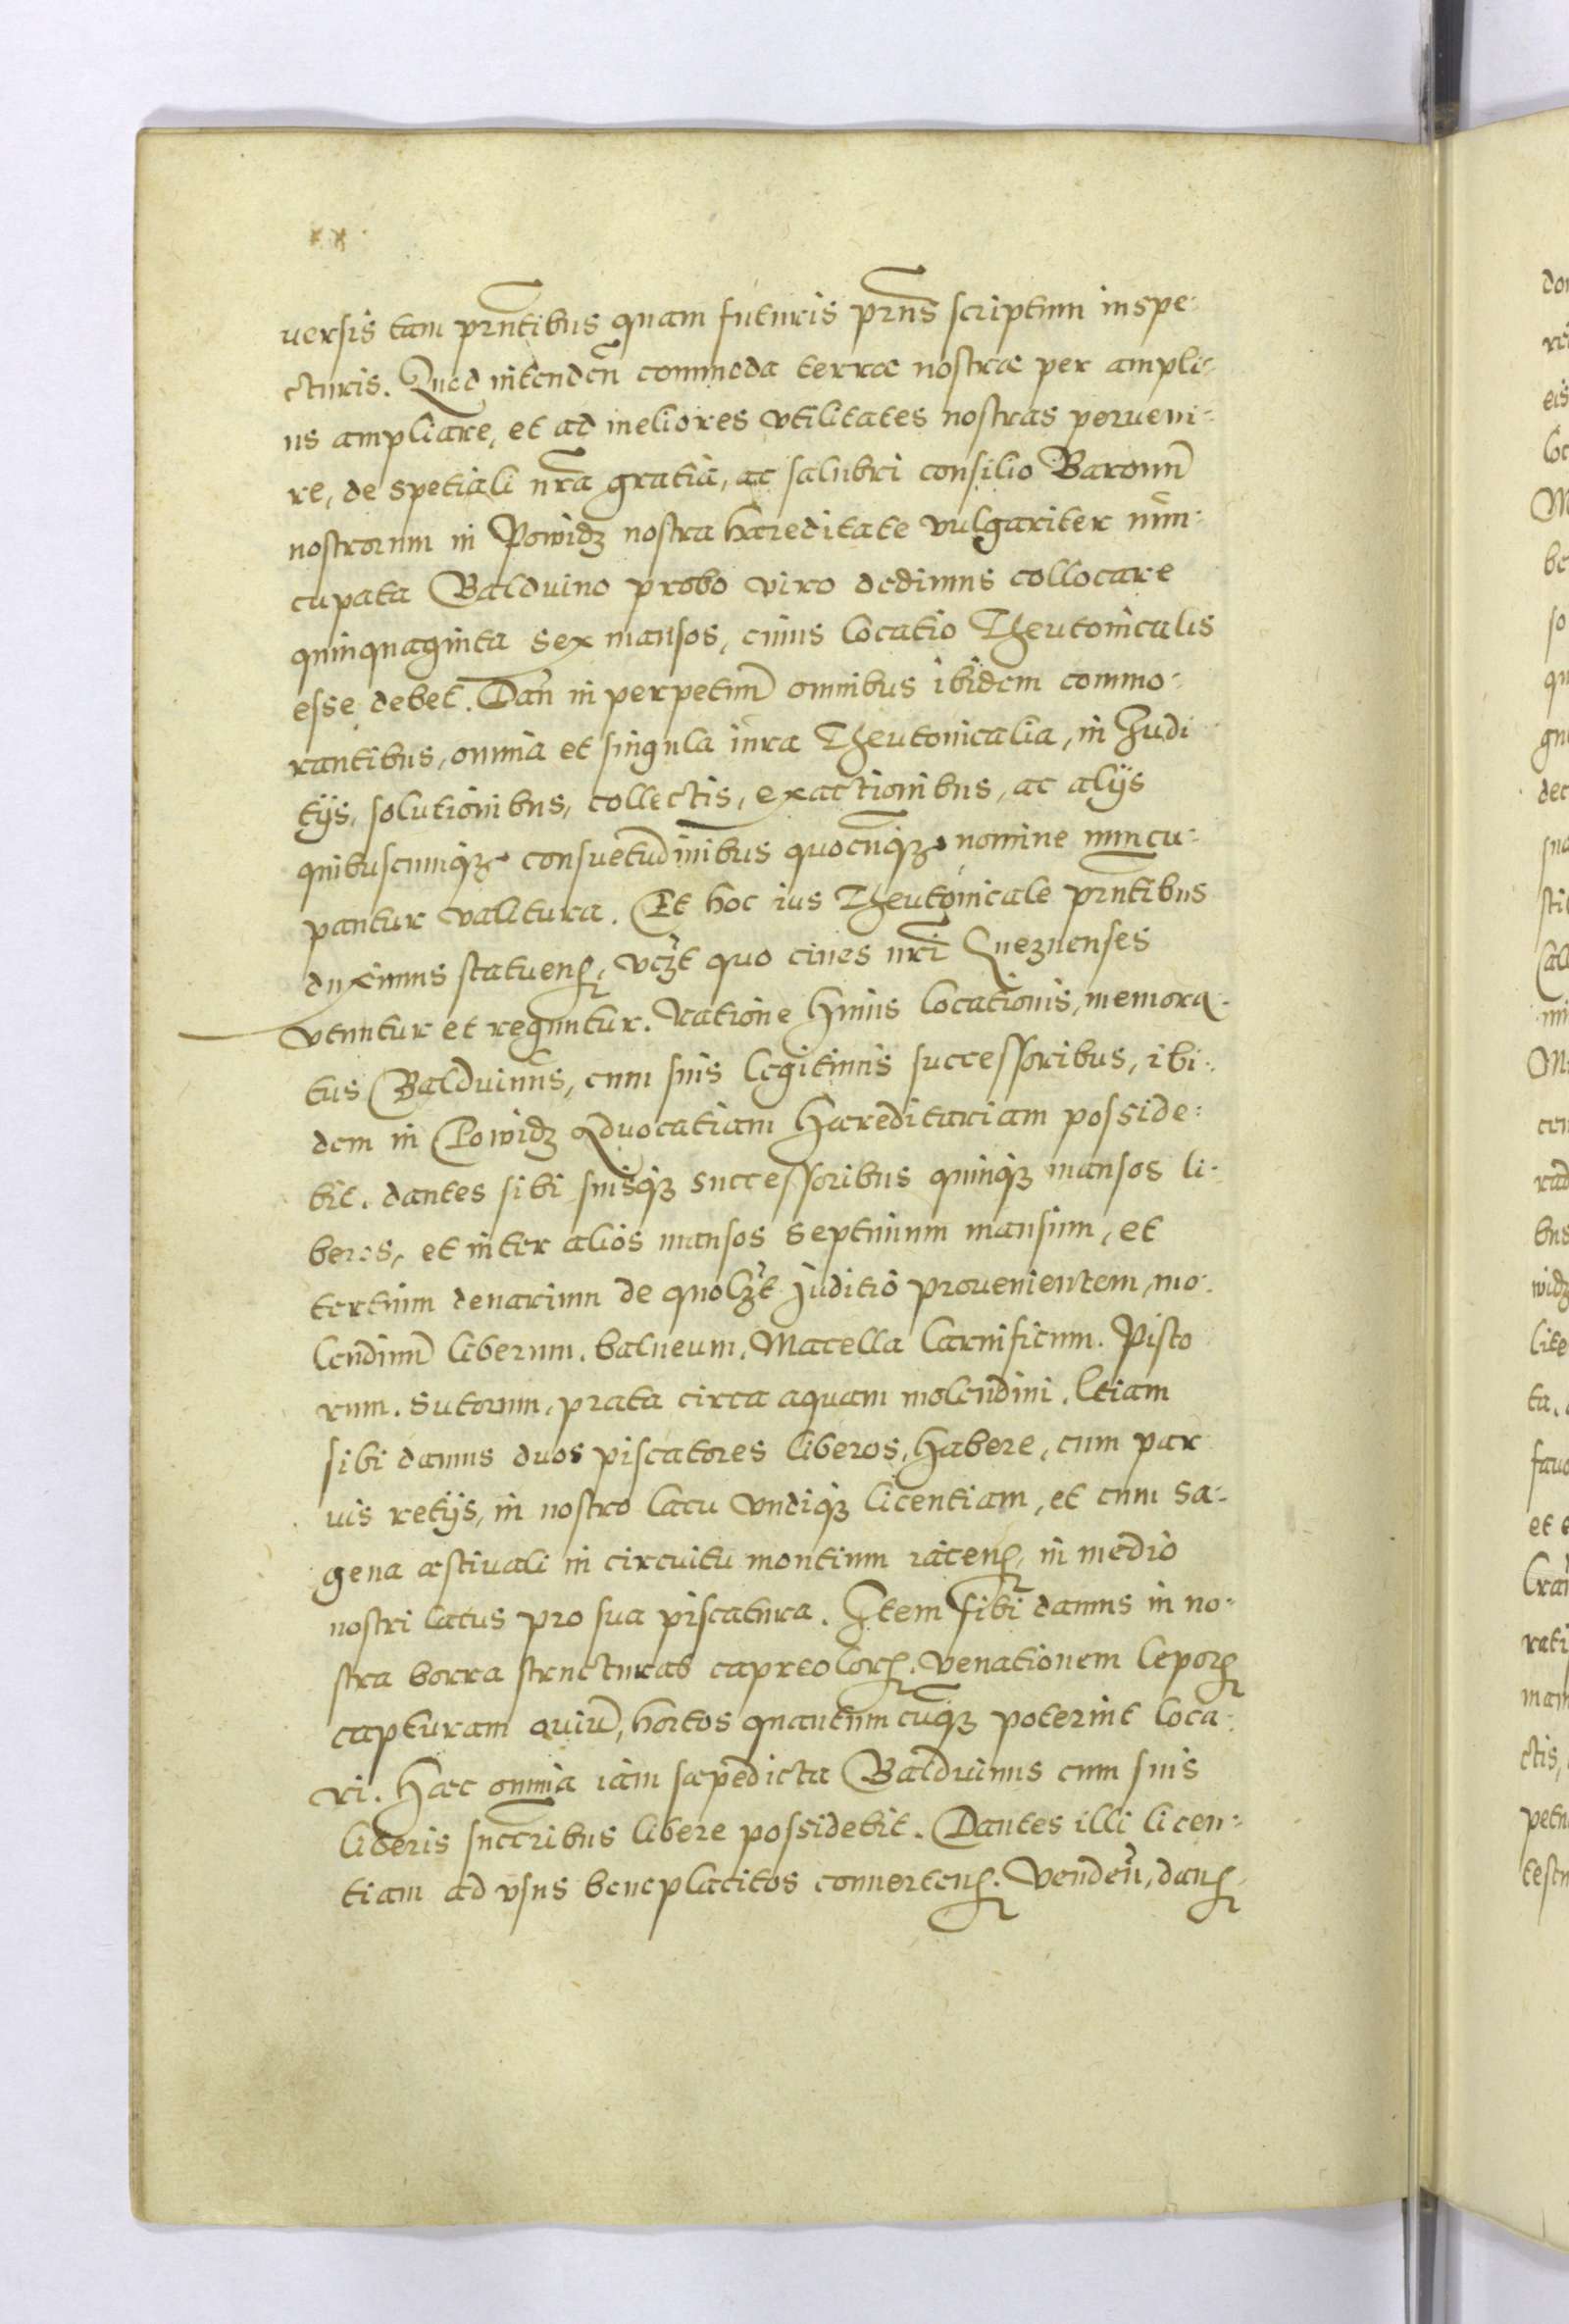 uersis tam prñtibus quam futuris prñs scriptum inspe-
cturis. Quod intendeñ commoda terræ nostræ per ampli-
us ampliare, et ad meliores vtilitates nostras perueni-
re, de spetiali nr̃a gratia, ac salubri consilio Baronũ
nostrorum in Powidz nostra hæreditate vulgariter nũn-
cupata Balduino probo viro dedimus collocare
quinquaginta sex mansos, cuius locatio Theutonicalis
esse debet. Dañ in perpetuũ omnibus ibidem commo-
rantibus, omnia et singula iura Theutonicalia, in Judi
tijs, solutionibus, collectis, exactionibus, ac alijs
quibuscumqz consuetudinibus quocũqz nomine nuncu-
pantur valitura. Et hoc ius Theutonicale prñtibus
duximus statuenꝭ, vcz̃t quo ciues nr̃i Gneznenses
vtuntur et reguntur. Ratione huius locationis, memora-
tus Balduinus, cum suis legitimis successoribus, ibi-
dem in Powidz Aduocatiam hæreditariam posside-
bit. dantes sibi suisqz successoribus quinqz mansos li-
beros, et inter alios mansos septimum mansum, et
tertium denarium de quolz̃t juditio prouenientem, mo-
lendinũ liberum. balneum. Macella Carnificum. Pisto
rum. Sutorum, prata circa aquam molendini. Etiam
sibi damus duos piscatores liberos, habere, cum par
uis retijs, in nostro lacu vndiqz licentiam, et cum sa-
gena æstiuali in circuitu montium iacenꝭ, in medio
nostri lacus pro sua piscatura. Item sibi damus in no-
stra borra structuras capreolorꝭ. venationem leporꝭ
capturam auiũ, hortos quantumcũqz poterint loca-
ri. Hæc omnia iam sæpedicta Balduinus cum suis
liberis succribus libere possidebit. Dantes illi licen-
tiam ad vsus beneplacitos conuertenꝭ. vendeñ, danꝭ